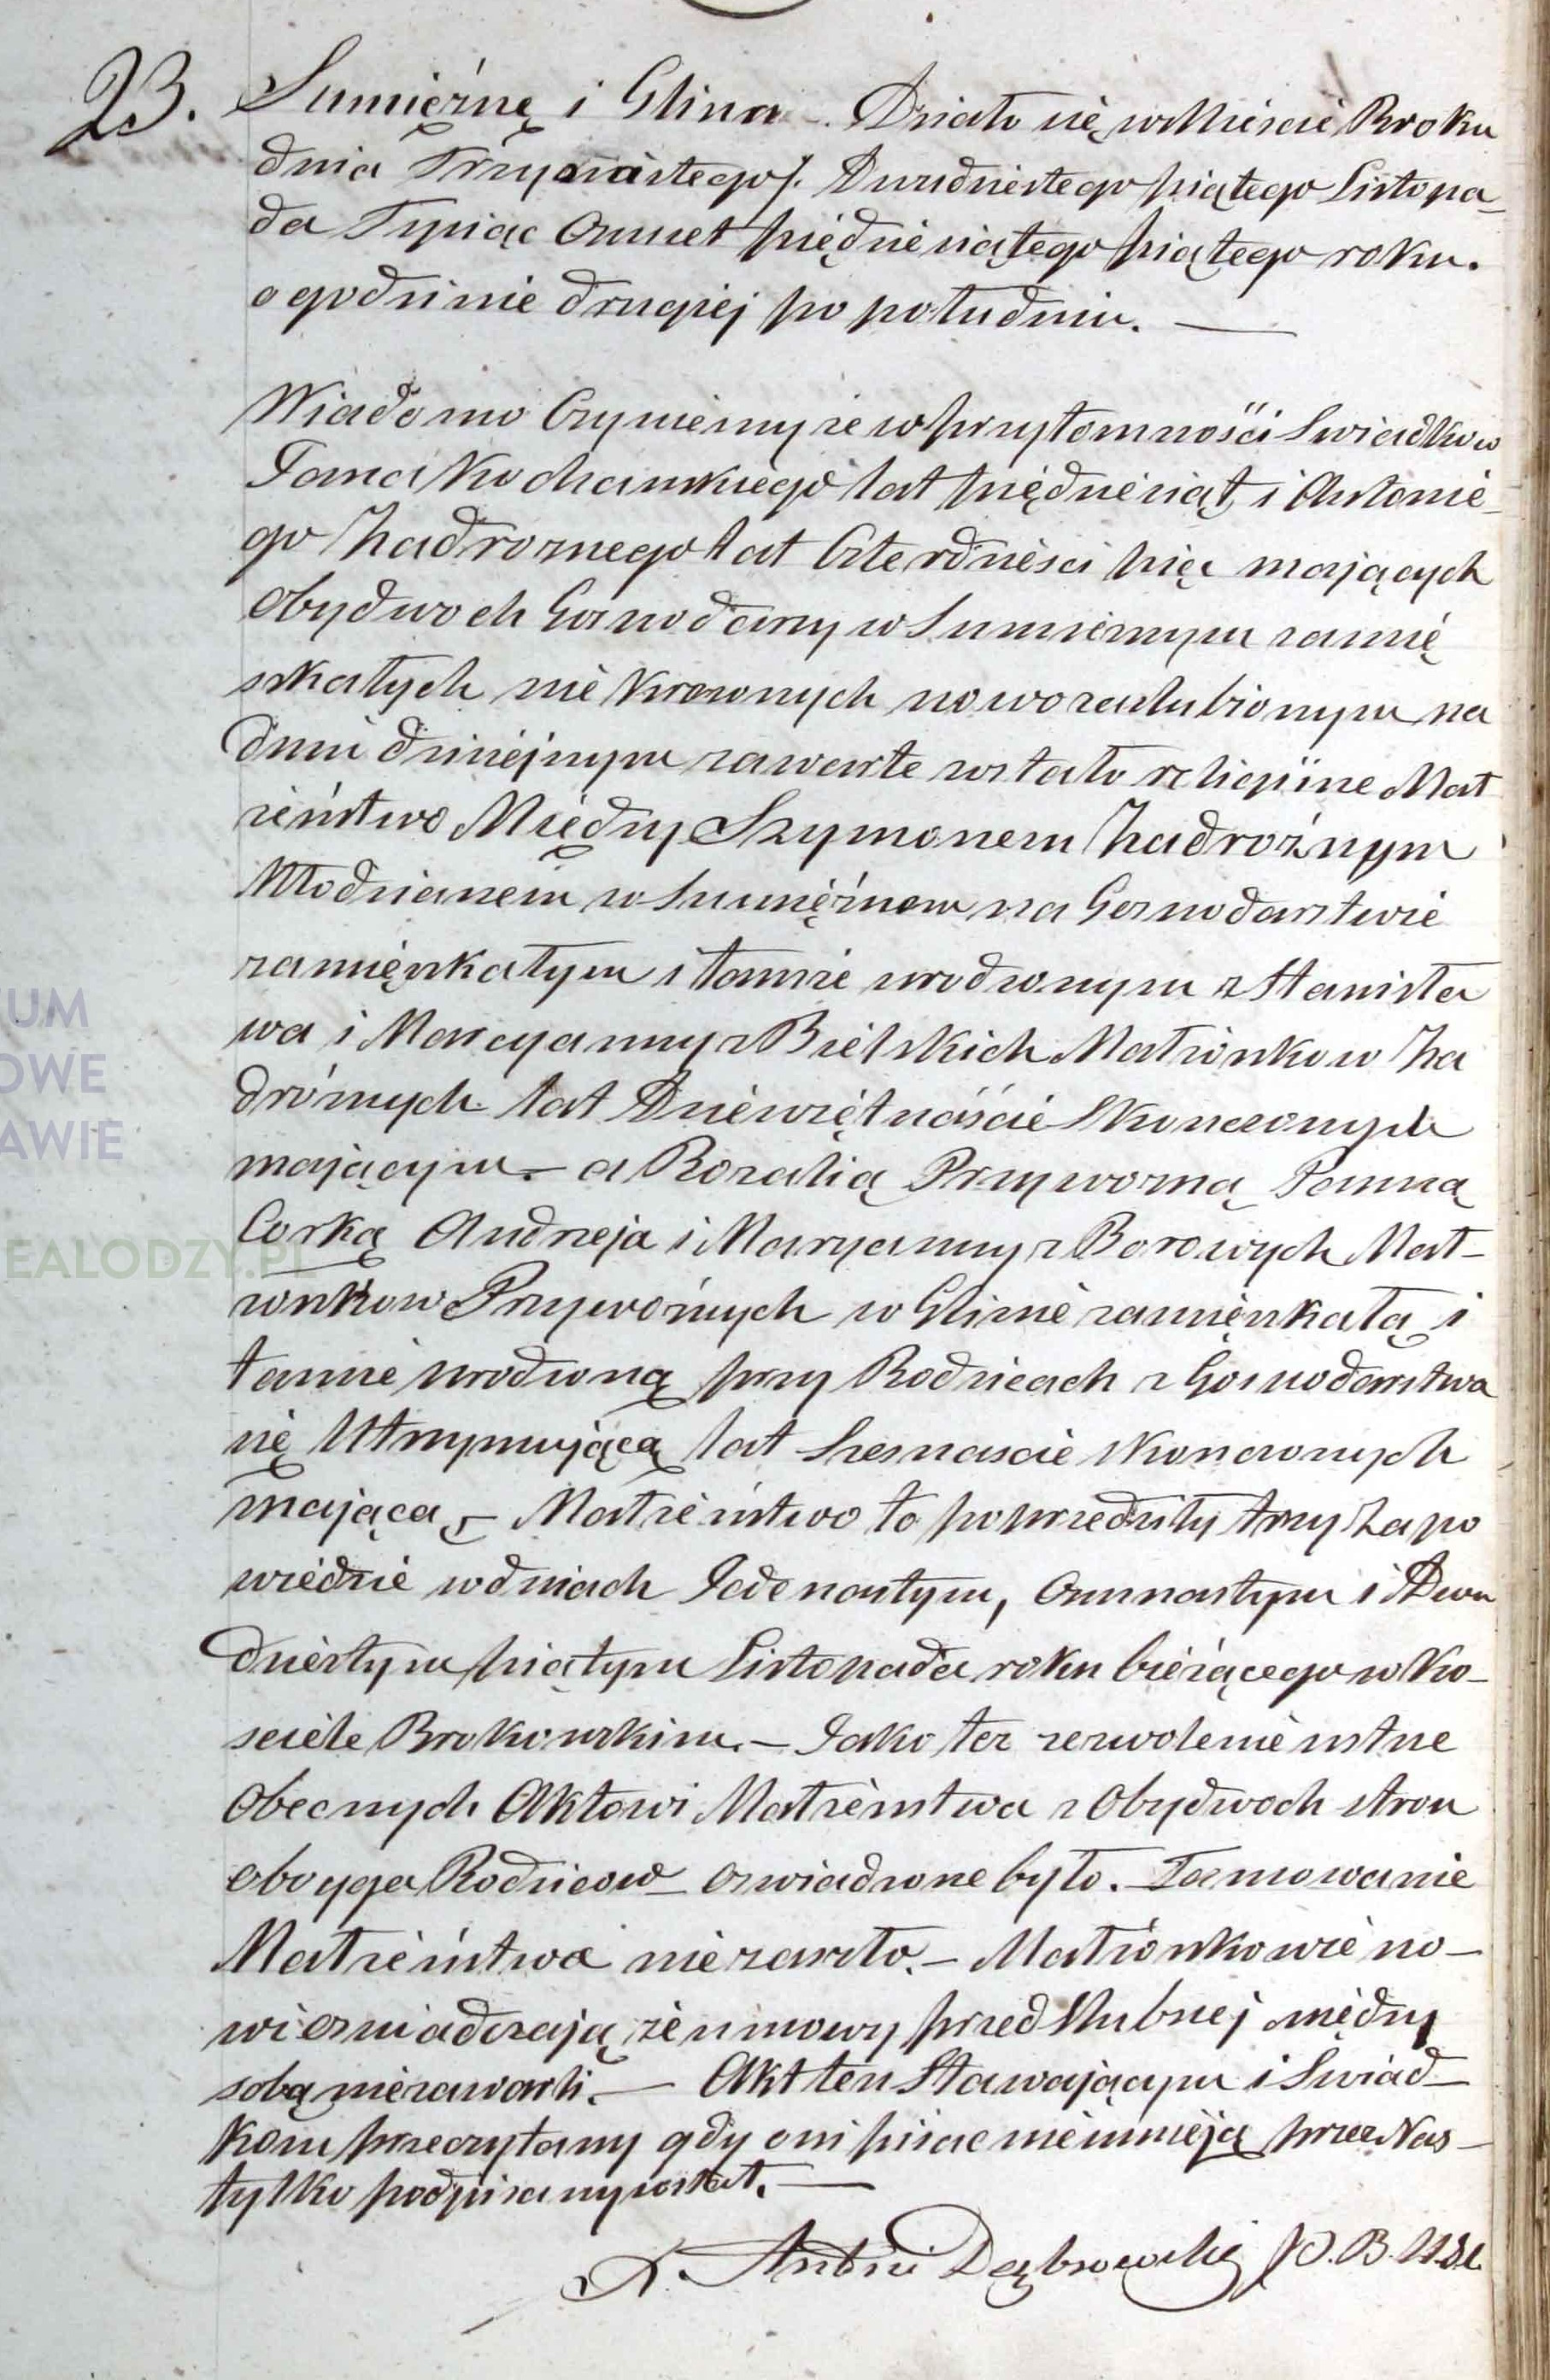 23. Sumiężnę i Glina. Działo się w Mieście Broku
dnia Trzynastego/. Dwudziestego piątego Listopa-
da Tysiąc Osmset piędziesiątego piątego roku.
o godzinie drugiej po południu. —
Wiadomo Czyniemy że w przytomności Swiadków
Jana Kochanskiego lat piędziesiąt, i Antonie-
go Zadroznego lat Czterdzieści pięc mających
obydwoch Gospodarzy w Sumieznym zamię
szkałych nie krewnych nowozaslubionym na
dniu dzisiejszym zawarte zostało religijne Mał
żeństwo Między Szymonem Zadrożnym
Młodzianem w Sumiężnem na Gospodarstwie
zamięszkałym i tamże urodzonym z Stanisła
wa i Maryanny z Bielskich Małżonkow Za
dróżnych lat Dziewiętnaście Skonczonych
mającym. – a Rozalią Przywozną Panną
Corką Andrzeja i Maryanny z Borowych Mał-
żonkow Przywoźnych w Glinie zamięszkałą i
tamże urodzoną przy Rodzicach z Gospodarstwa
się Utrzymującą lat Szesnascie skonczonych
mającą, – Małżeństwo to poprzedziły trzy Zapo
wiedzie w dniach Jedenastym, Osmnastym i Dwu
dziestym piątym Listopada roku bieżącego w Ko-
sciele Brokowskim. – Jako też zezwolenie ustne
Obecnych Aktowi Małżenstwa z Obydwoch stron
oboyga Rodzicow oswiadczone było. – Tamowanie
Małżeństwa nie zaszło. – Małżonkowie no-
wi oswiadczają że umowy przedslubnej między
sobą niezawarli. – Akt ten Stawającym i Swiad-
kom przeczytany gdy oni pisac nieumieją przez Nas-
tylko podpisany został. —
X. Antoni Dąbrowski P. B. U. S. C.
UM
OWE
AWIE
EALODZY.PL